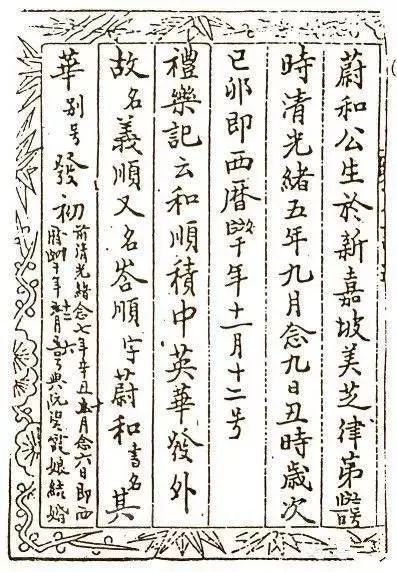 蔚和公生於新嘉坡美芝律第号
時清光緒五年九月念九日丑時歲次
己卯即西曆年十一月十二号
禮樂記云和順積中英華發外
故名義順又名峇順字蔚和書名其
華別号發初
前清光緒念七年辛丑十一月念六日即西
曆年月号與阮娘結婚